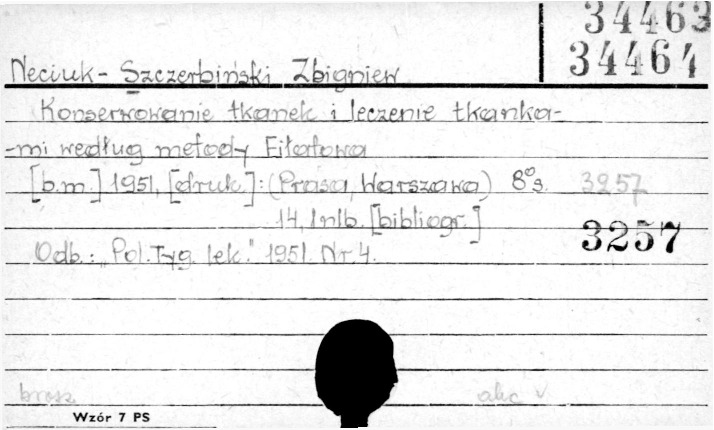 34463
34464
Neciuk-Szczerbiński Zbigniew
Konserwowanie tkanek i leczenie tkanka-
-mi według metody Fiłatowa
[b.m.] 1951, [druk.]: (Prasa, Warszawa) 8° s. 3257
14, 1 nlb. [bibliogr.]
3257
Odb.: "Pol. Tyg. lek." 1951. Nr. 4.
brosz
akc v
Wzór 7 PS